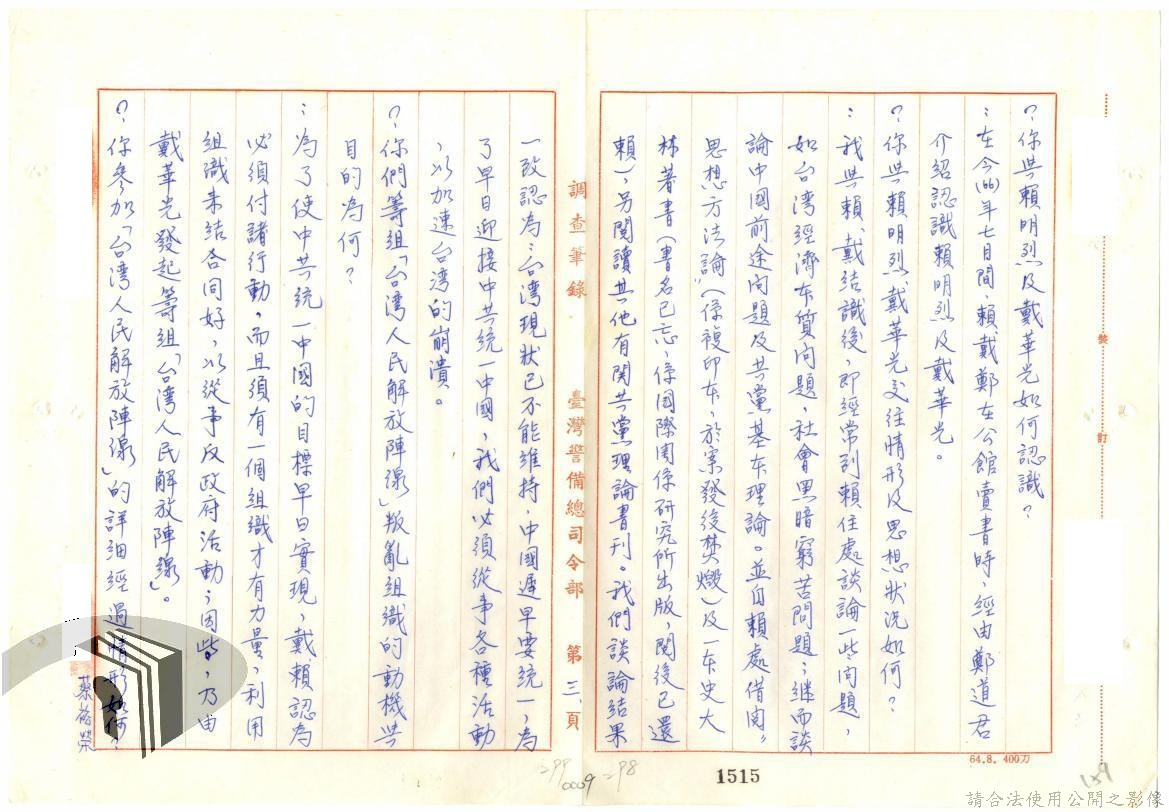 ？你与賴明烈及戴華光如何認識？
：在今(66)年七月間，賴、戴、鄭在公館賣書時，經由鄭道君
介紹認識賴明烈及戴華光。
？你与賴明烈、戴華光交往情形及思想狀況如何？
：我与賴、戴結識後，即經常到賴住處談論一些問題，
如台湾經濟本質问題，社會黑暗窮苦問題；继而談
論中國前途问題及共黨基本理論。並自賴處借閱，
思想方法論」（係複印本，於案發後焚燬）及一本史大
林著書（書名已忘，係國際関係研究所出版，閱後已還
賴），另閱讀其他有関共黨理論書刊。我們談論結果
調查筆錄
臺灣警備總司令部
第三頁
一致認為：台湾現狀已不能維持，中國遲早要統一，為
了早日迎接中共統一中國，我們必須從事各種活動
，以加速台湾的崩潰。
？你們籌組「台湾人民解放陣線」叛亂組織的動機与
目的為何？
：為了使中共統一中國的目標早日實現，戴、賴認為
必須付諸行動，而且須有一個組織才有力量，利用
組織來結合同好，以從事反政府活動；因此，乃由
戴華光發起籌組「台湾人民解放陣線」。
？你參加「台湾人民解放陣線」的詳细經過情形如何？
蔡裕榮
裝
訂
64.8. 400刀
299
0009
298
1515
159
請合法使用公開之影像